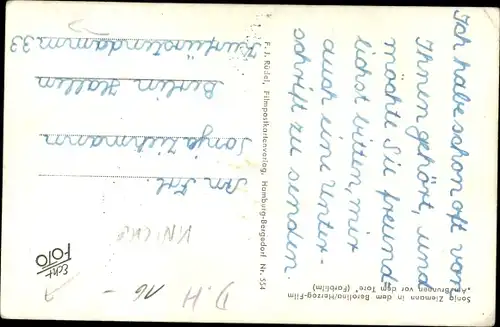 Ich habe schon oft von
Ihnen gehört, und
möchte Sie freund-
lichst bitten, mir
auch eine Unter-
schrift zu senden.
Sonja Ziemann in dem Berolina/Herzog-Film
"Am Brunnen vor dem Tore" (Farbfilm)
F. J. Rüdel, Filmpostkartenverlag, Hamburg-Bergedorf Nr. 554
An Frl.
Sonja Ziehmann
Berlin Hallen
Kurfürstendamm 33
Echt
FOTO
D.H 16 -